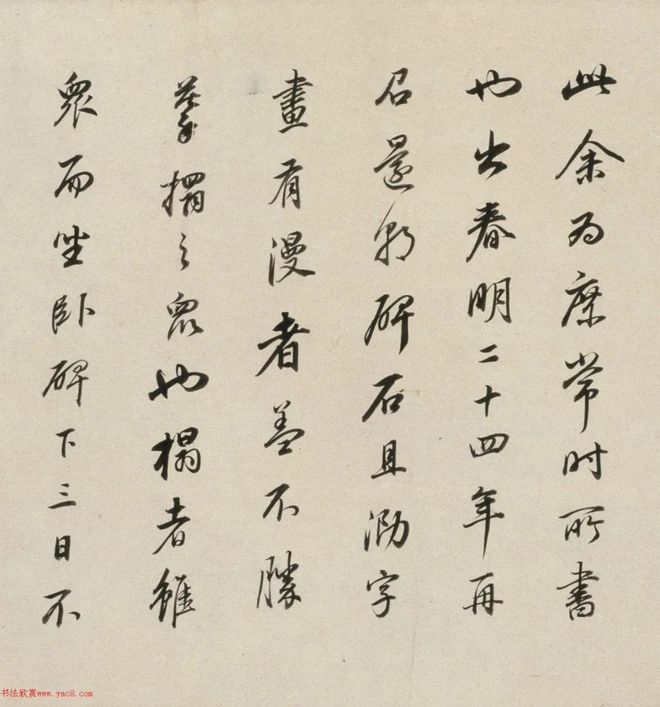 此余为庶常时所書
也出春明二十四年再
召還朝碑石且泐字
畫有漫者盖不勝
摹搨之衆也榻者雖
衆而坐卧碑下三日不
书法欣赏www.yac8.com